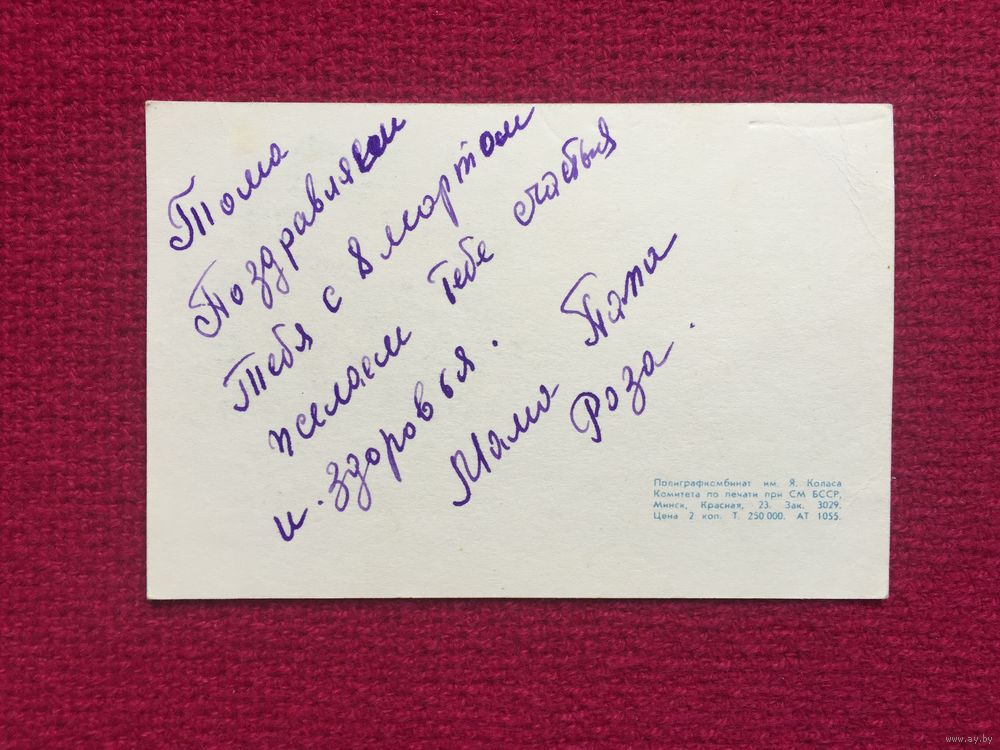 Тома
Поздравляем
тебя с 8 мартом
желаем тебе счастья
и. здоровья.
Мама Папа
Роза.
Полиграфкомбинат им. Я. Коласа
Комитета по печати при СМ БССР,
Минск, Красная, 23. Зак. 3029.
Цена 2 коп. Т. 250 000. АТ 1055.
www.ay.by